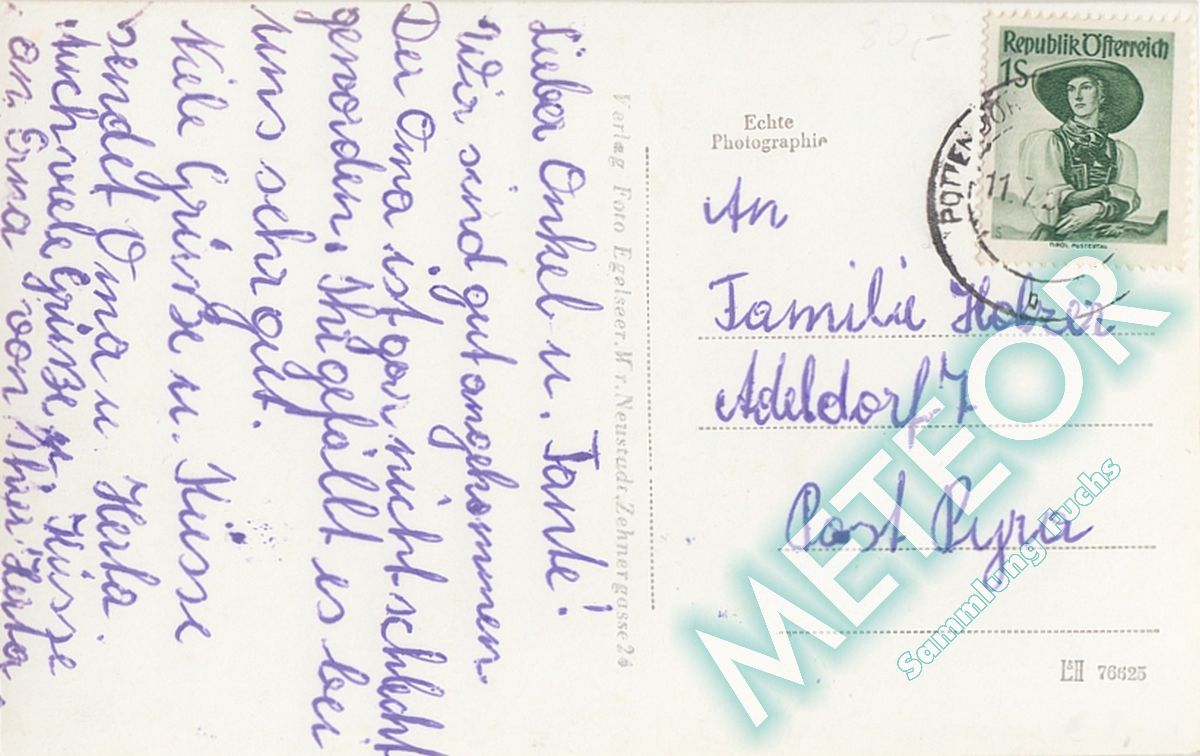 Lieber Onkel u. Tante!
Wir sind gut angekommen
Der Oma ist gar nicht schlecht
geworden. Ihr gefällt es bei
uns sehr gut.
Viele Grüße u. Küsse
sendet Oma u. Herta.
Auch viele Grüße u. Küsse
an Erna von Ihrer Herta
Verlag Foto Egelseer, Wr. Neustadt, Zehnergasse 24
Echte
Photographie
Republik Österreich
1S
TIROL PUSTERTAL
POTTEN
11. 7.
An
Familie Holzer
Adeldorf 7
Post Pyra
L&H 76625
METEOR
Sammlung Fuchs